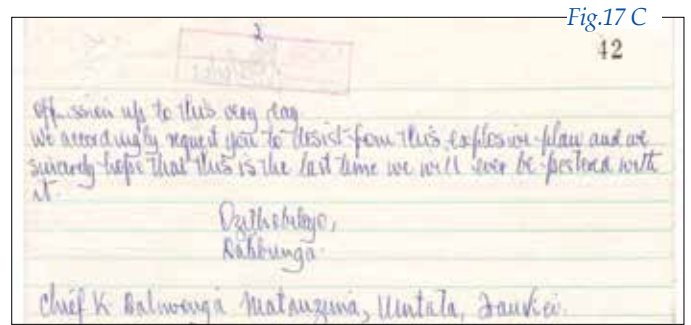 Fig.17 C
2
42
up to this very day
We accordingly request you to desist from this explosive plan and we
sincerely hope that this is the last time we will ever be pestered with
it.
Ozithobileyo,
Chief K Matanzima, Umtata,